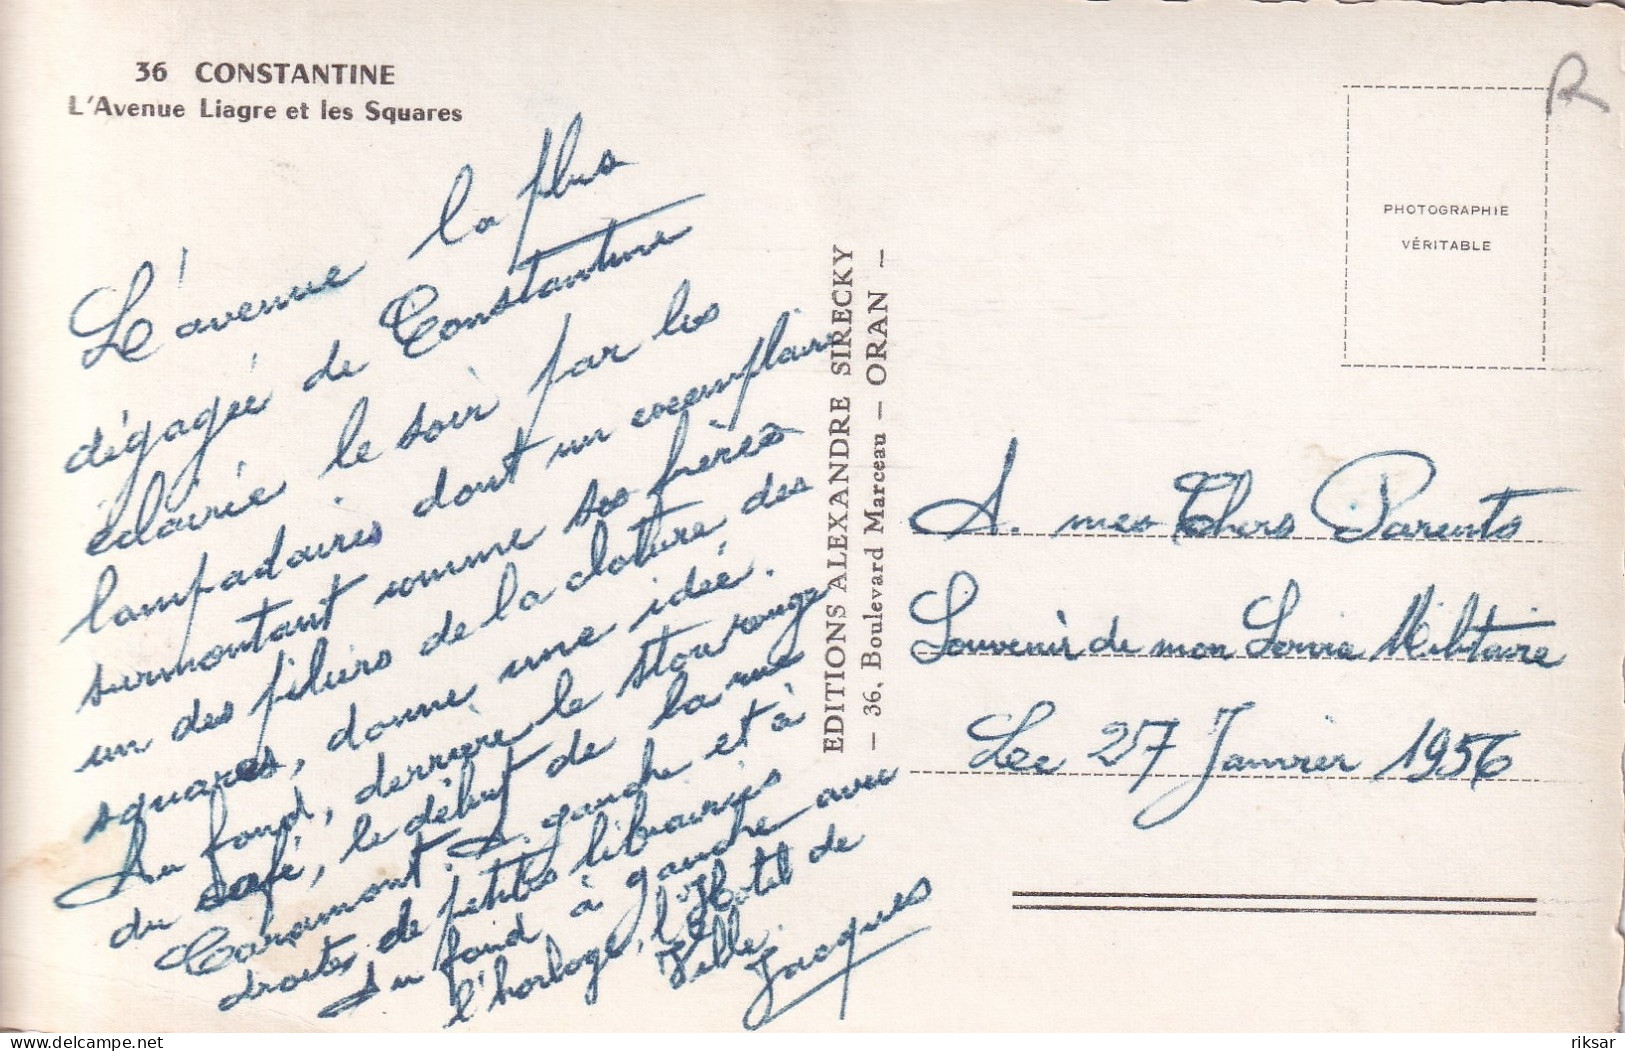 36 CONSTANTINE
L'Avenue Liagre et les Squares
L'avenue la plus
dégagée de Constantine
éclairée le soir par les
lampadaires dont un exemplaire
surmontant comme ses frères
un des piliers de la cloture des
squares, donne une idée.
Au fond, derrière le store rouge
du café, le début de la rue
Caramont. A gauche et à
droite, de petites librairies
Au fond à gauche avec
l'horloge, l'Hotel de
Ville.
Jacques
EDITIONS ALEXANDRE SIRECKY
— 36, Boulevard Marceau — ORAN —
R
PHOTOGRAPHIE
VÉRITABLE
A. mes Chers Parents
Souvenir de mon Servie Militaire
Le 27 Janvier 1956
36
riksar